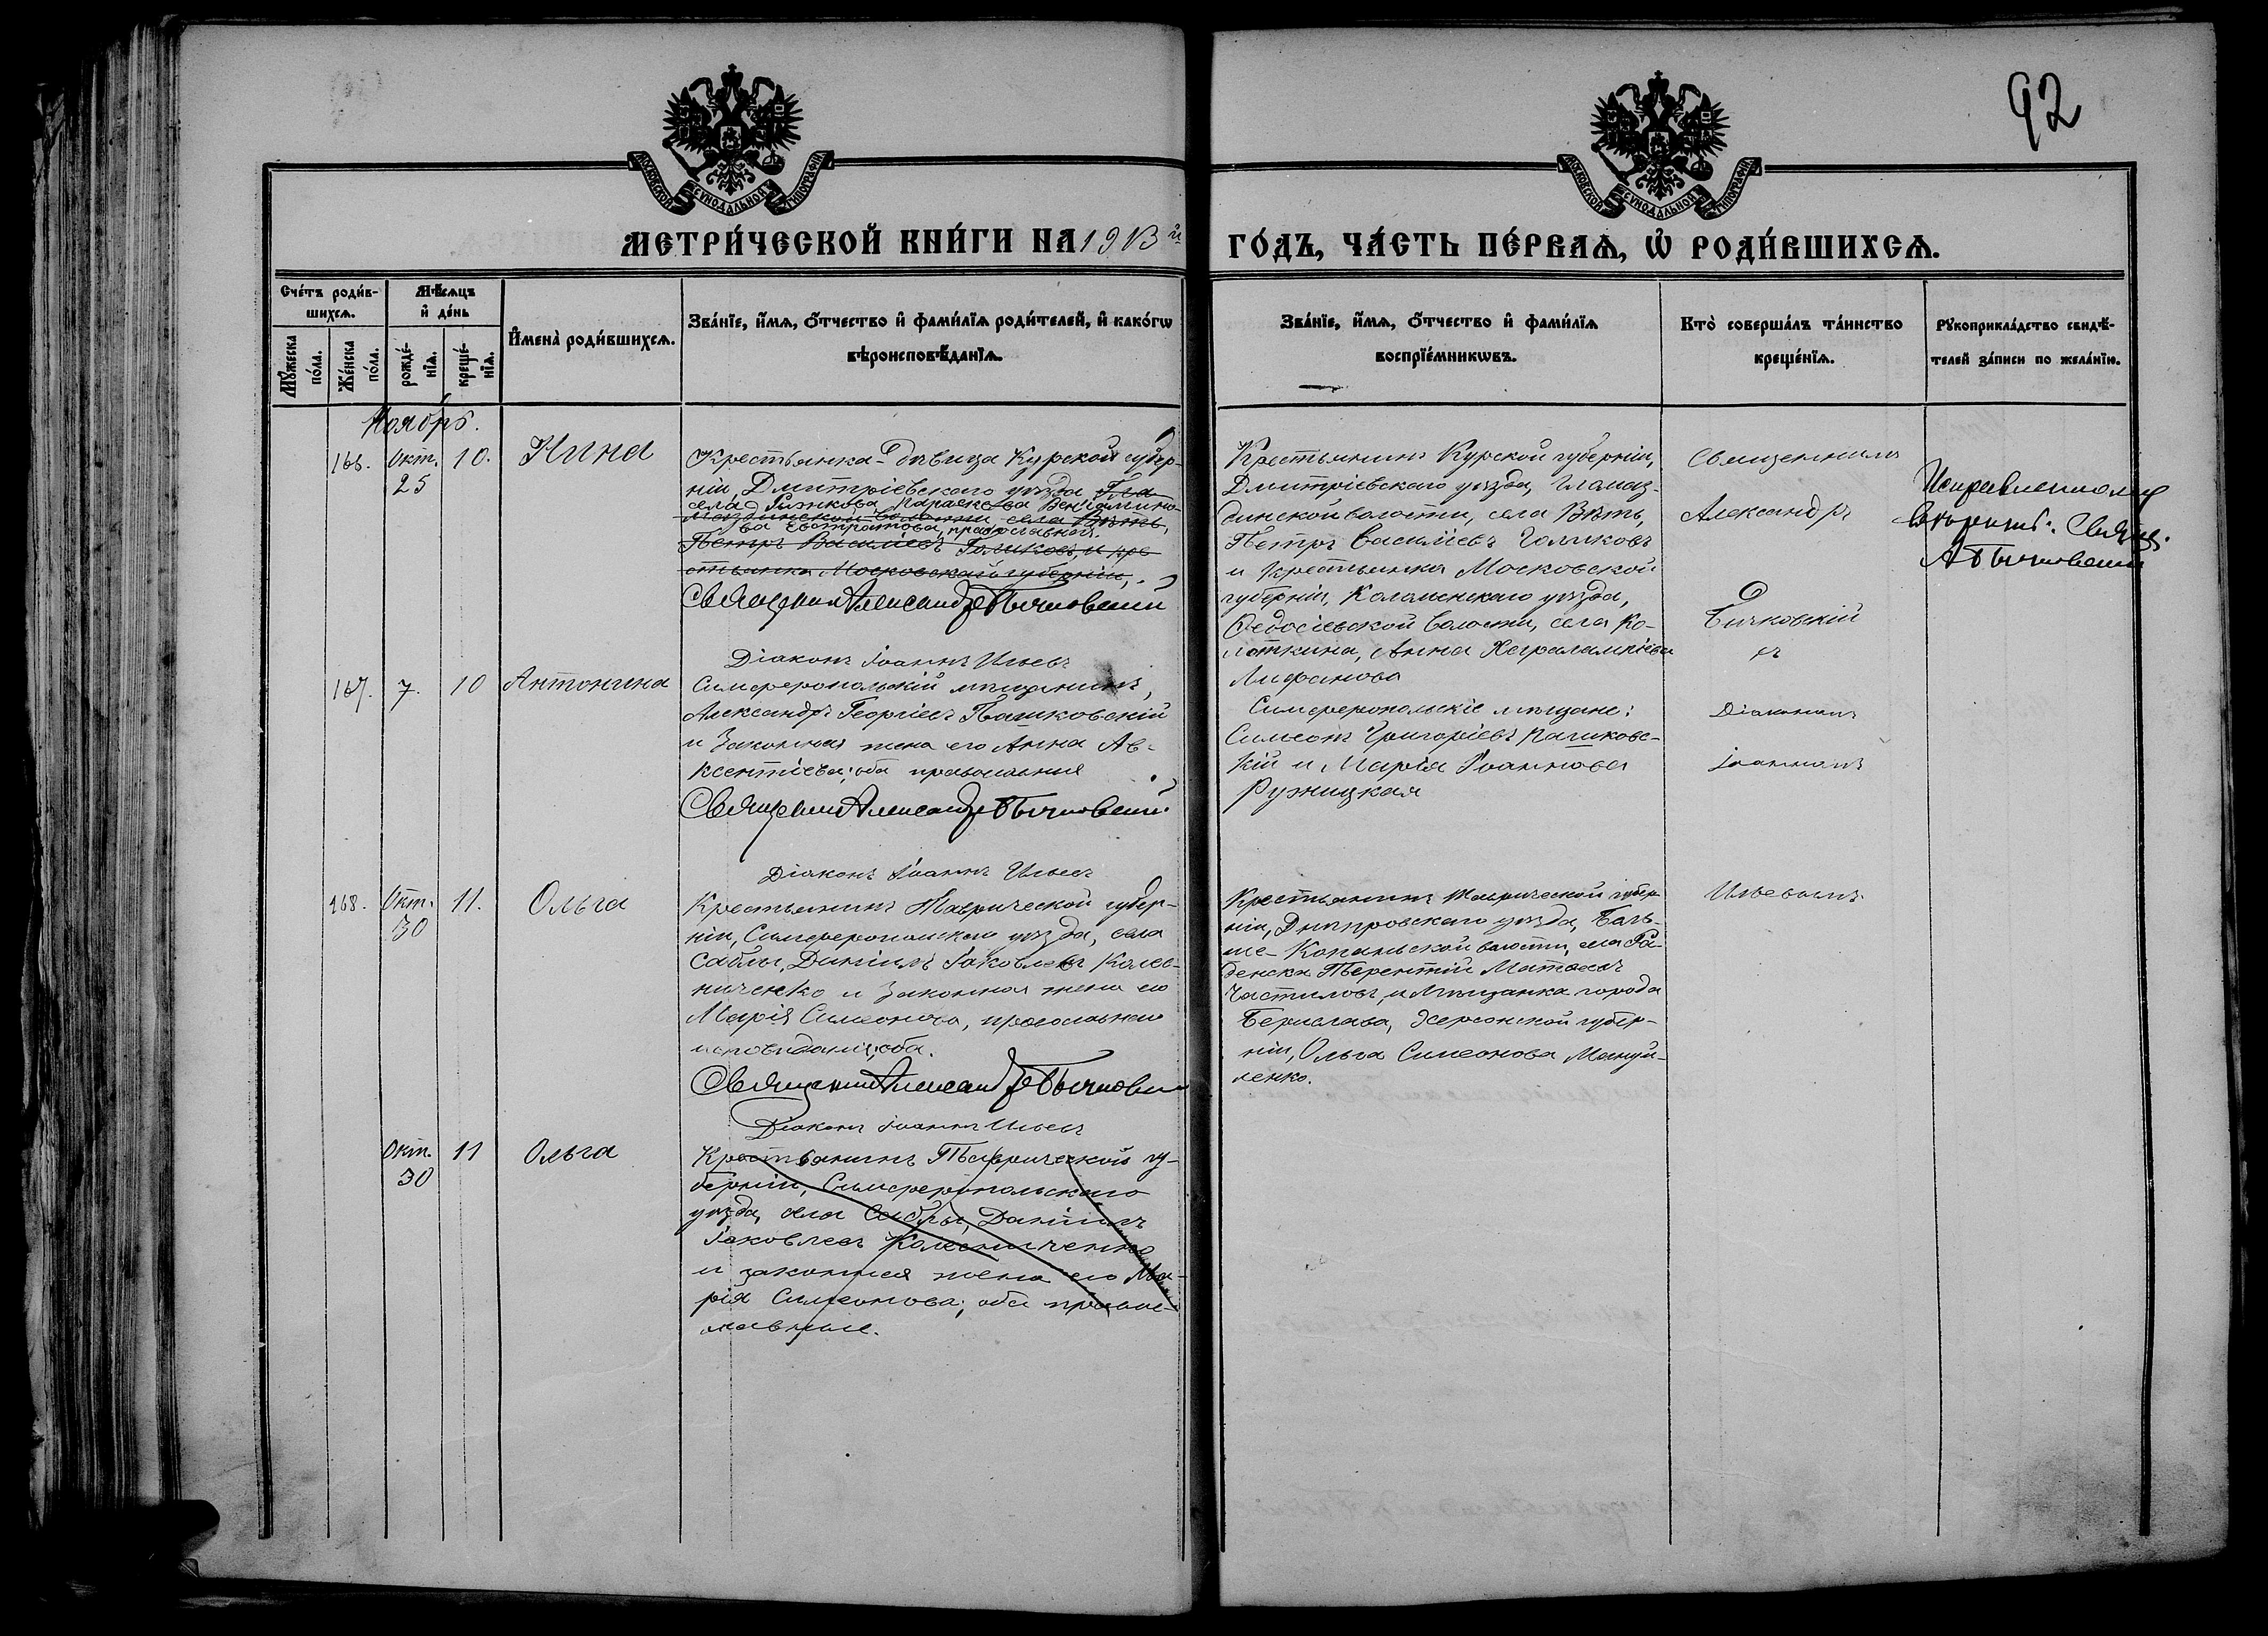 92
МОСКОВСКОЙ СУНОДАЛЬНОЙ ТИПОГРАФІИ
МОСКОВСКОЙ СУНОДАЛЬНОЙ ТИПОГРАФІИ
МЕТРИ́ЧЕСКОЙ КНИ́ГИ НА 1913й
ГО́ДЪ, ЧА́СТЬ ПЕ́РВАѦ, Ѡ РОДИ́ВШИХСѦ.
Сче́тъ роди́в-
шихсѧ.
Мꙋ́жеска по́ла.
Же́нска по́ла.
Мѣ́сѧцъ
и҆ де́нь
рожде́-
нїѧ.
креще́-
нїѧ.
И҆мена̀ роди́вшихсѧ.
Зва́нїе, и҆́мѧ, ѻ҆́тчество и҆ фами́лїѧ роди́телей, и҆ како́гѡ
вѣроисповѣ́данїѧ.
Зва́нїе, и҆́мѧ, ѻ҆́тчество и҆ фами́лїѧ
воспрїе́мникѡвъ.
Кто̀ соверша́лъ та́инство
креще́нїѧ.
Рꙋкоприкла́дство свидѣ́-
телей за́писи по жела́нїю.
Ноябрь.
166. Окт. 25 10. Нина
Крестьянка-дѣвица Курской губер-
ніи, Дмитріевскаго уѣзда, Гла-
села Параскева Веніамино-
ва Евстратова, православная.
Петръ Василіевъ Голиковъ и кре-
стьянка Московской губерніи,
Священник Александр Бычковский
Діаконъ Іоаннъ Ильевъ
Крестьянинъ Курской губерніи,
Дмитріевскаго уѣзда, Гламаз-
динской волости, села Вѣть,
Петръ Василіевъ Голиковъ
и крестьянка Московской
губерніи, Коломенскаго уѣзда,
Ѳедосіевской волости, села Ко-
лоткина, Анна Харалампіева
Лифанова
Священникъ
Александръ
Бычковскій
съ
Исправленному
вѣрить: Свящ.
А Бычковский
167. 7. 10 Антонина
Симферопольскій мѣщанинъ,
Александръ Георгіевъ Пашковскій
и законная жена его Анна Ав-
ксентіева; оба православные
Священник Александр Бычковский
Діаконъ Іоаннъ Ильевъ
Симферопольскіе мѣщане:
Симеонъ Григоріевъ Пашковс-
кій и Марія Іоаннова
Ружицкая
Діакономъ
Іоанномъ
168. Окт. 30 11. Ольга
Крестьянинъ Таврической губер-
ніи, Симферопольскаго уѣзда, села
Саблы, Даніилъ Іаковлевъ Колес-
ниченко и законная жена его
Марія Симеонова, православнаго
исповѣданія, оба.
Священник Александр Бычковский
Діаконъ Іоаннъ Ильевъ
Крестьянинъ Таврической губер-
ніи, Днѣпровскаго уѣзда, Боль-
ше-Копаньской волости, села Ра-
денска Терентій
Частиловъ, и Мѣщанка города
Берислава, Херсонской губер-
ніи, Ольга Симеонова Мануй-
ленко.
Ильевымъ.
Окт. 30 11 Ольга
Крестьянинъ Таврической гу-
берніи, Симферопольскаго
уѣзда, села Саблы, Даніилъ
Іаковлевъ Колесниченко
и законная жена его Ма-
рія Симеонова; оба право-
славные.